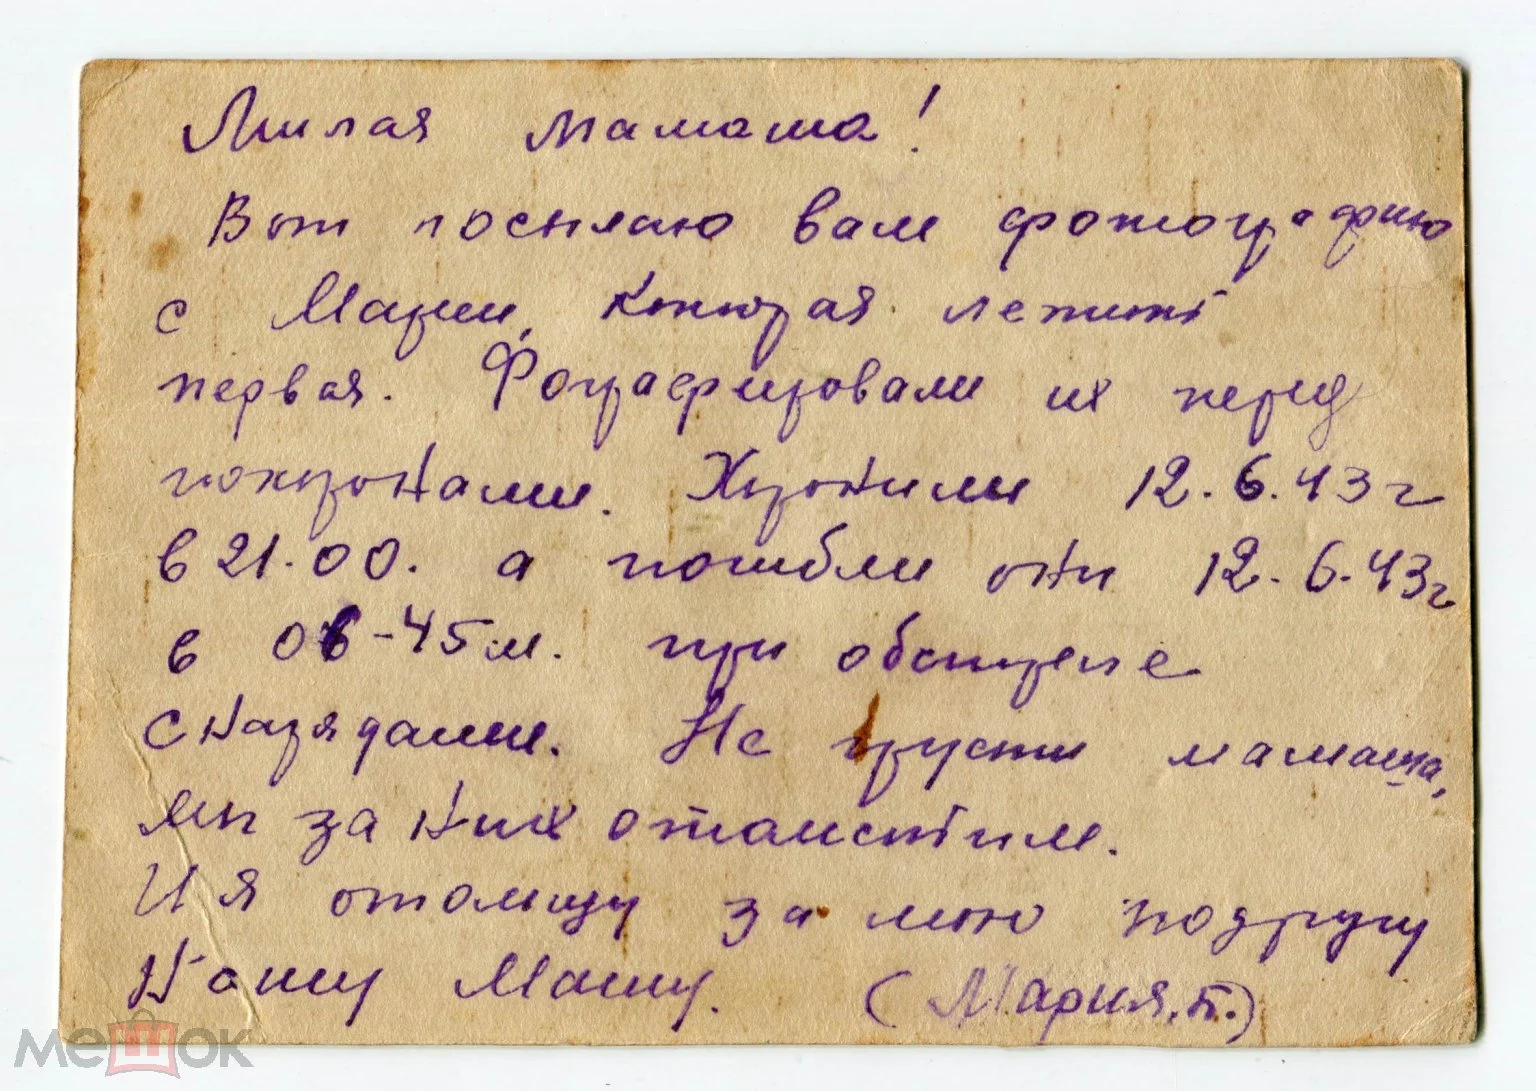 Милая мамаша!
Вот посылаю вам фотографию
с Марии, которая лежит
первая. Фотрафировали их перед
похоронами. Хоронили 12.6.43г
в 21.00. а погибли они 12.6.43г
в 06-45м. при обстреле
снарядами. Не грусти мамаша,
мы за них отомстим.
И я отомщу за мою подругу
Нашу Машу. (Мария.П.)
мешок